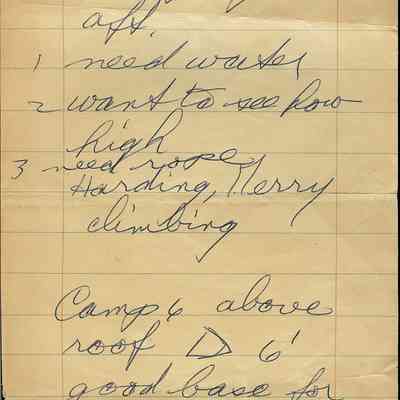 aft.
1 need water
2 want to see how
high
3 need rope
Harding, Merry
climbing
Camp 6 above
roof D 6'
good base for